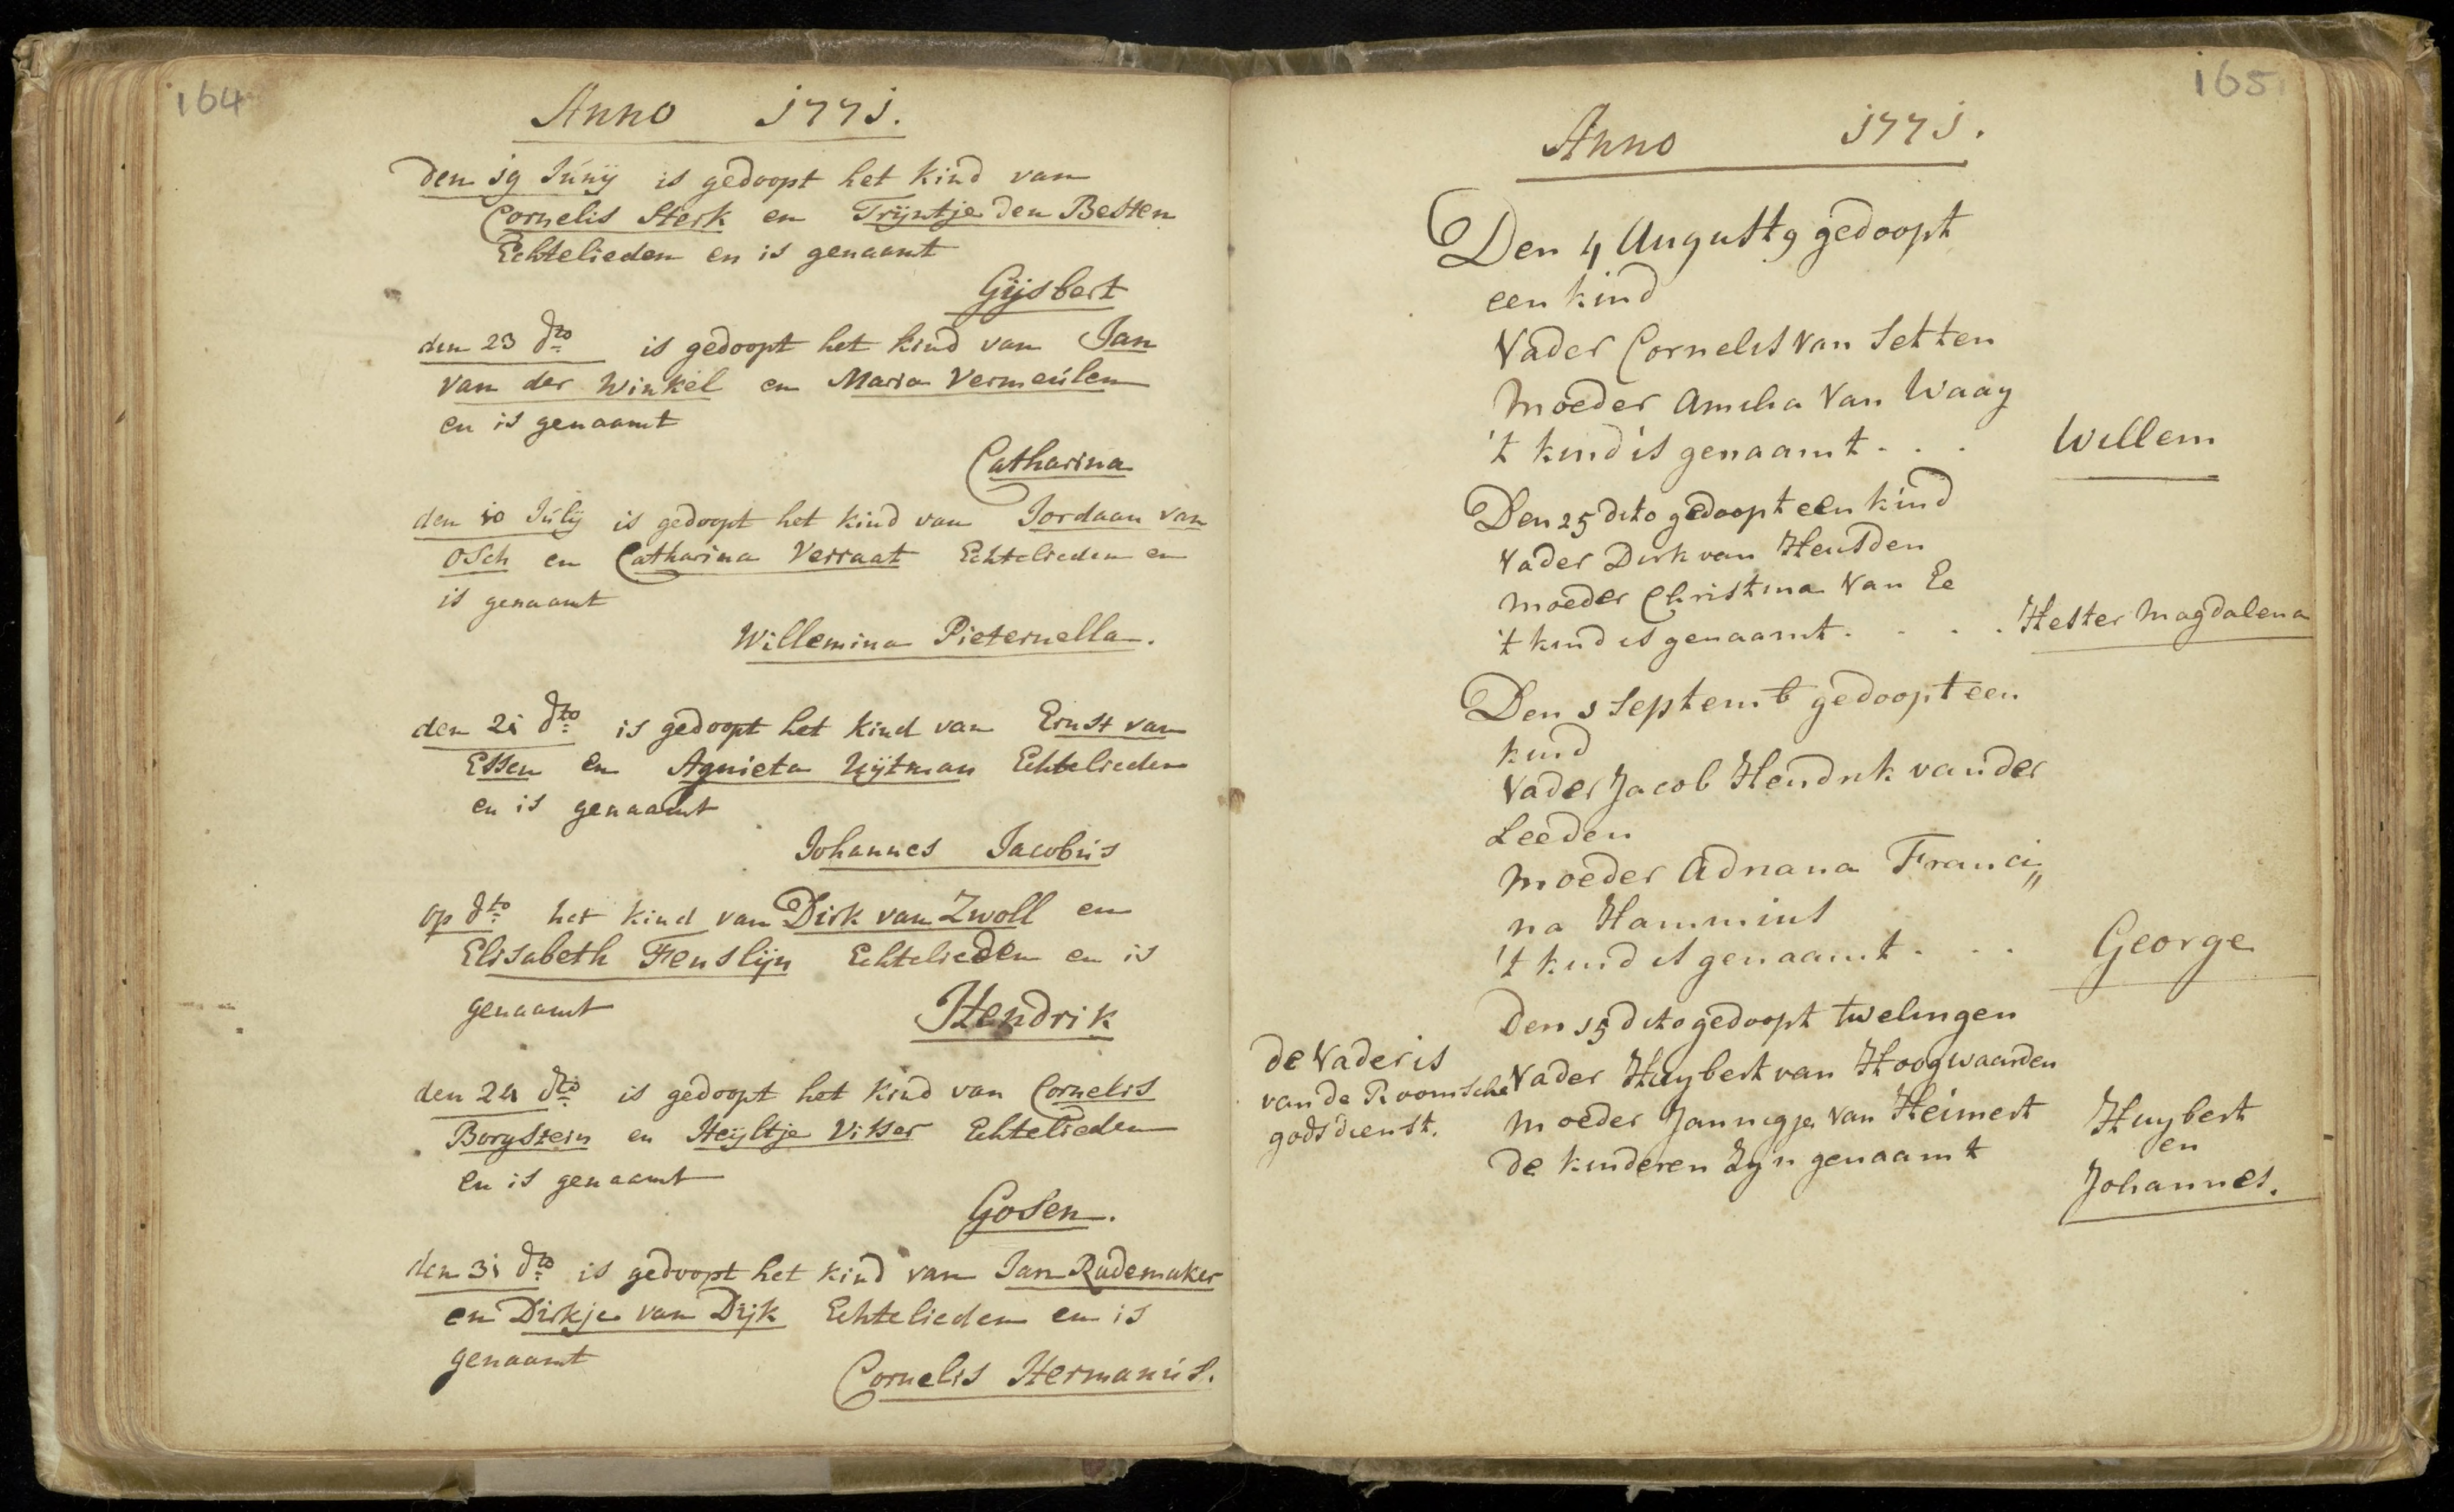 164
Anno 1771.
den 19 Júnÿ is gedoopt het kind van
Cornelis Sterk en Trÿntje den Besten
Echtelieden en is genaamt
Gÿsbert
den 23 dto is gedoopt het kind van Jan
van der Winkel en Maria Vermeúlen
en is genaamt
Catharina
den 10 Júlÿ is gedoopt het kind van Jordaan van
Osch en Catharina Verraat Echtelieden en
is genaamt
Willemina Pieternella.
den 21 dto is gedoopt het kind van Ernst van
Essen en Agnieta Uÿtman Echtelieden
en is genaamt
Johannes Jacobús
op dto het kind van Dirk van Zwoll en
Elisabeth Fenslijn Echtelieden en is
genaamt Hendrik
den 24 dto is gedoopt het kind van Cornelis
Borgstein en Heÿltje Visser Echtelieden
en is genaamt
Gosen.
den 31 dto is gedoopt het kind van Jan Rademaker
en Dirkje van Dÿk Echtelieden en is
genaamt
Cornelis Hermanús.
165
Anno 1771.
Den 4 Augustg gedoopt
een kind
Vader Cornelis van Setten
Moeder Amelia van Waay
't kind is genaamt . . . Willem
Den 25 dito gedoopt een kind
Vader Dirk van Heusden
Moeder Christina van Ee
't kind is genaamt . . . . Hester Magdalena
Den 1 Septemb gedoopt een
kind
Vader Jacob Hendrik van der
Leeden
Moeder Adriana Franci„
na Hammius
't kind is genaamt . . . George
Den 15 dito gedoopt twelingen
de Vader is
van de Roomsche
godsdienst.
Vader Huybert van Hoogwaarden
Moeder Jannigje van Heimert
de kinderen zyn genaamt
Huybert
en
Johannes.